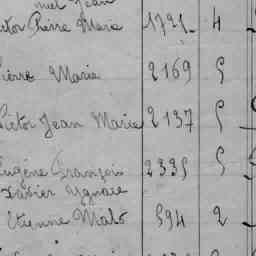 muel Jean
ictor Pierre Marie 1721 4
Pierre Marie 2169 5
Victor Jean Marie 2137 5
Eugène François 2335 5
Xavier Ygnace
Etienne Malo 594 2